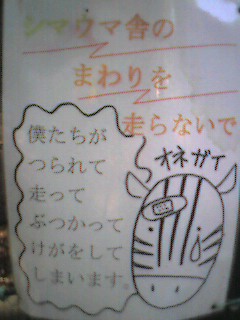 シマウマ舎の
まわりを
走らないで
オネガイ
僕たちが
つられて
走って
ぶつかって
けがをして
しまいます。